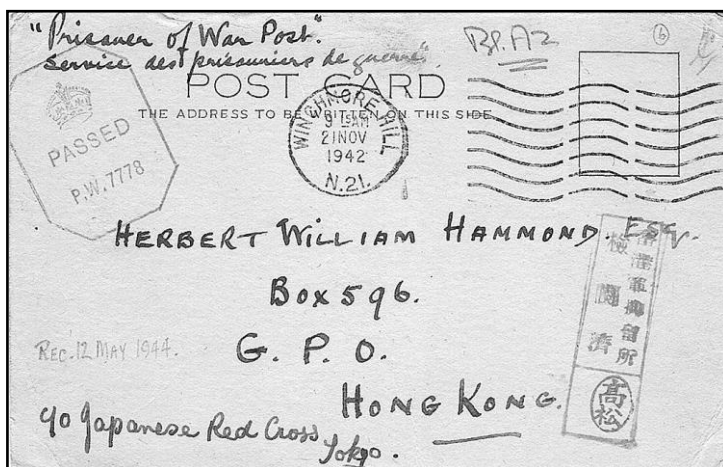 "Prisoner of War Post".
Service des prisonniers de guerre"
Bl.A2
6
POST CARD
THE ADDRESS TO BE WRITTEN ON THIS SIDE
PASSED
P.W.7778
WINCHMORE HILL
9 15AM
21 NOV
1942
N.21.
HERBERT WILLIAM HAMMOND. ESQ.
Box 596.
G. P. O.
HONG KONG.
REC. 12 MAY 1944.
c/o Japanese Red Cross
Tokyo.
香港軍抑留所
檢閲濟
高松